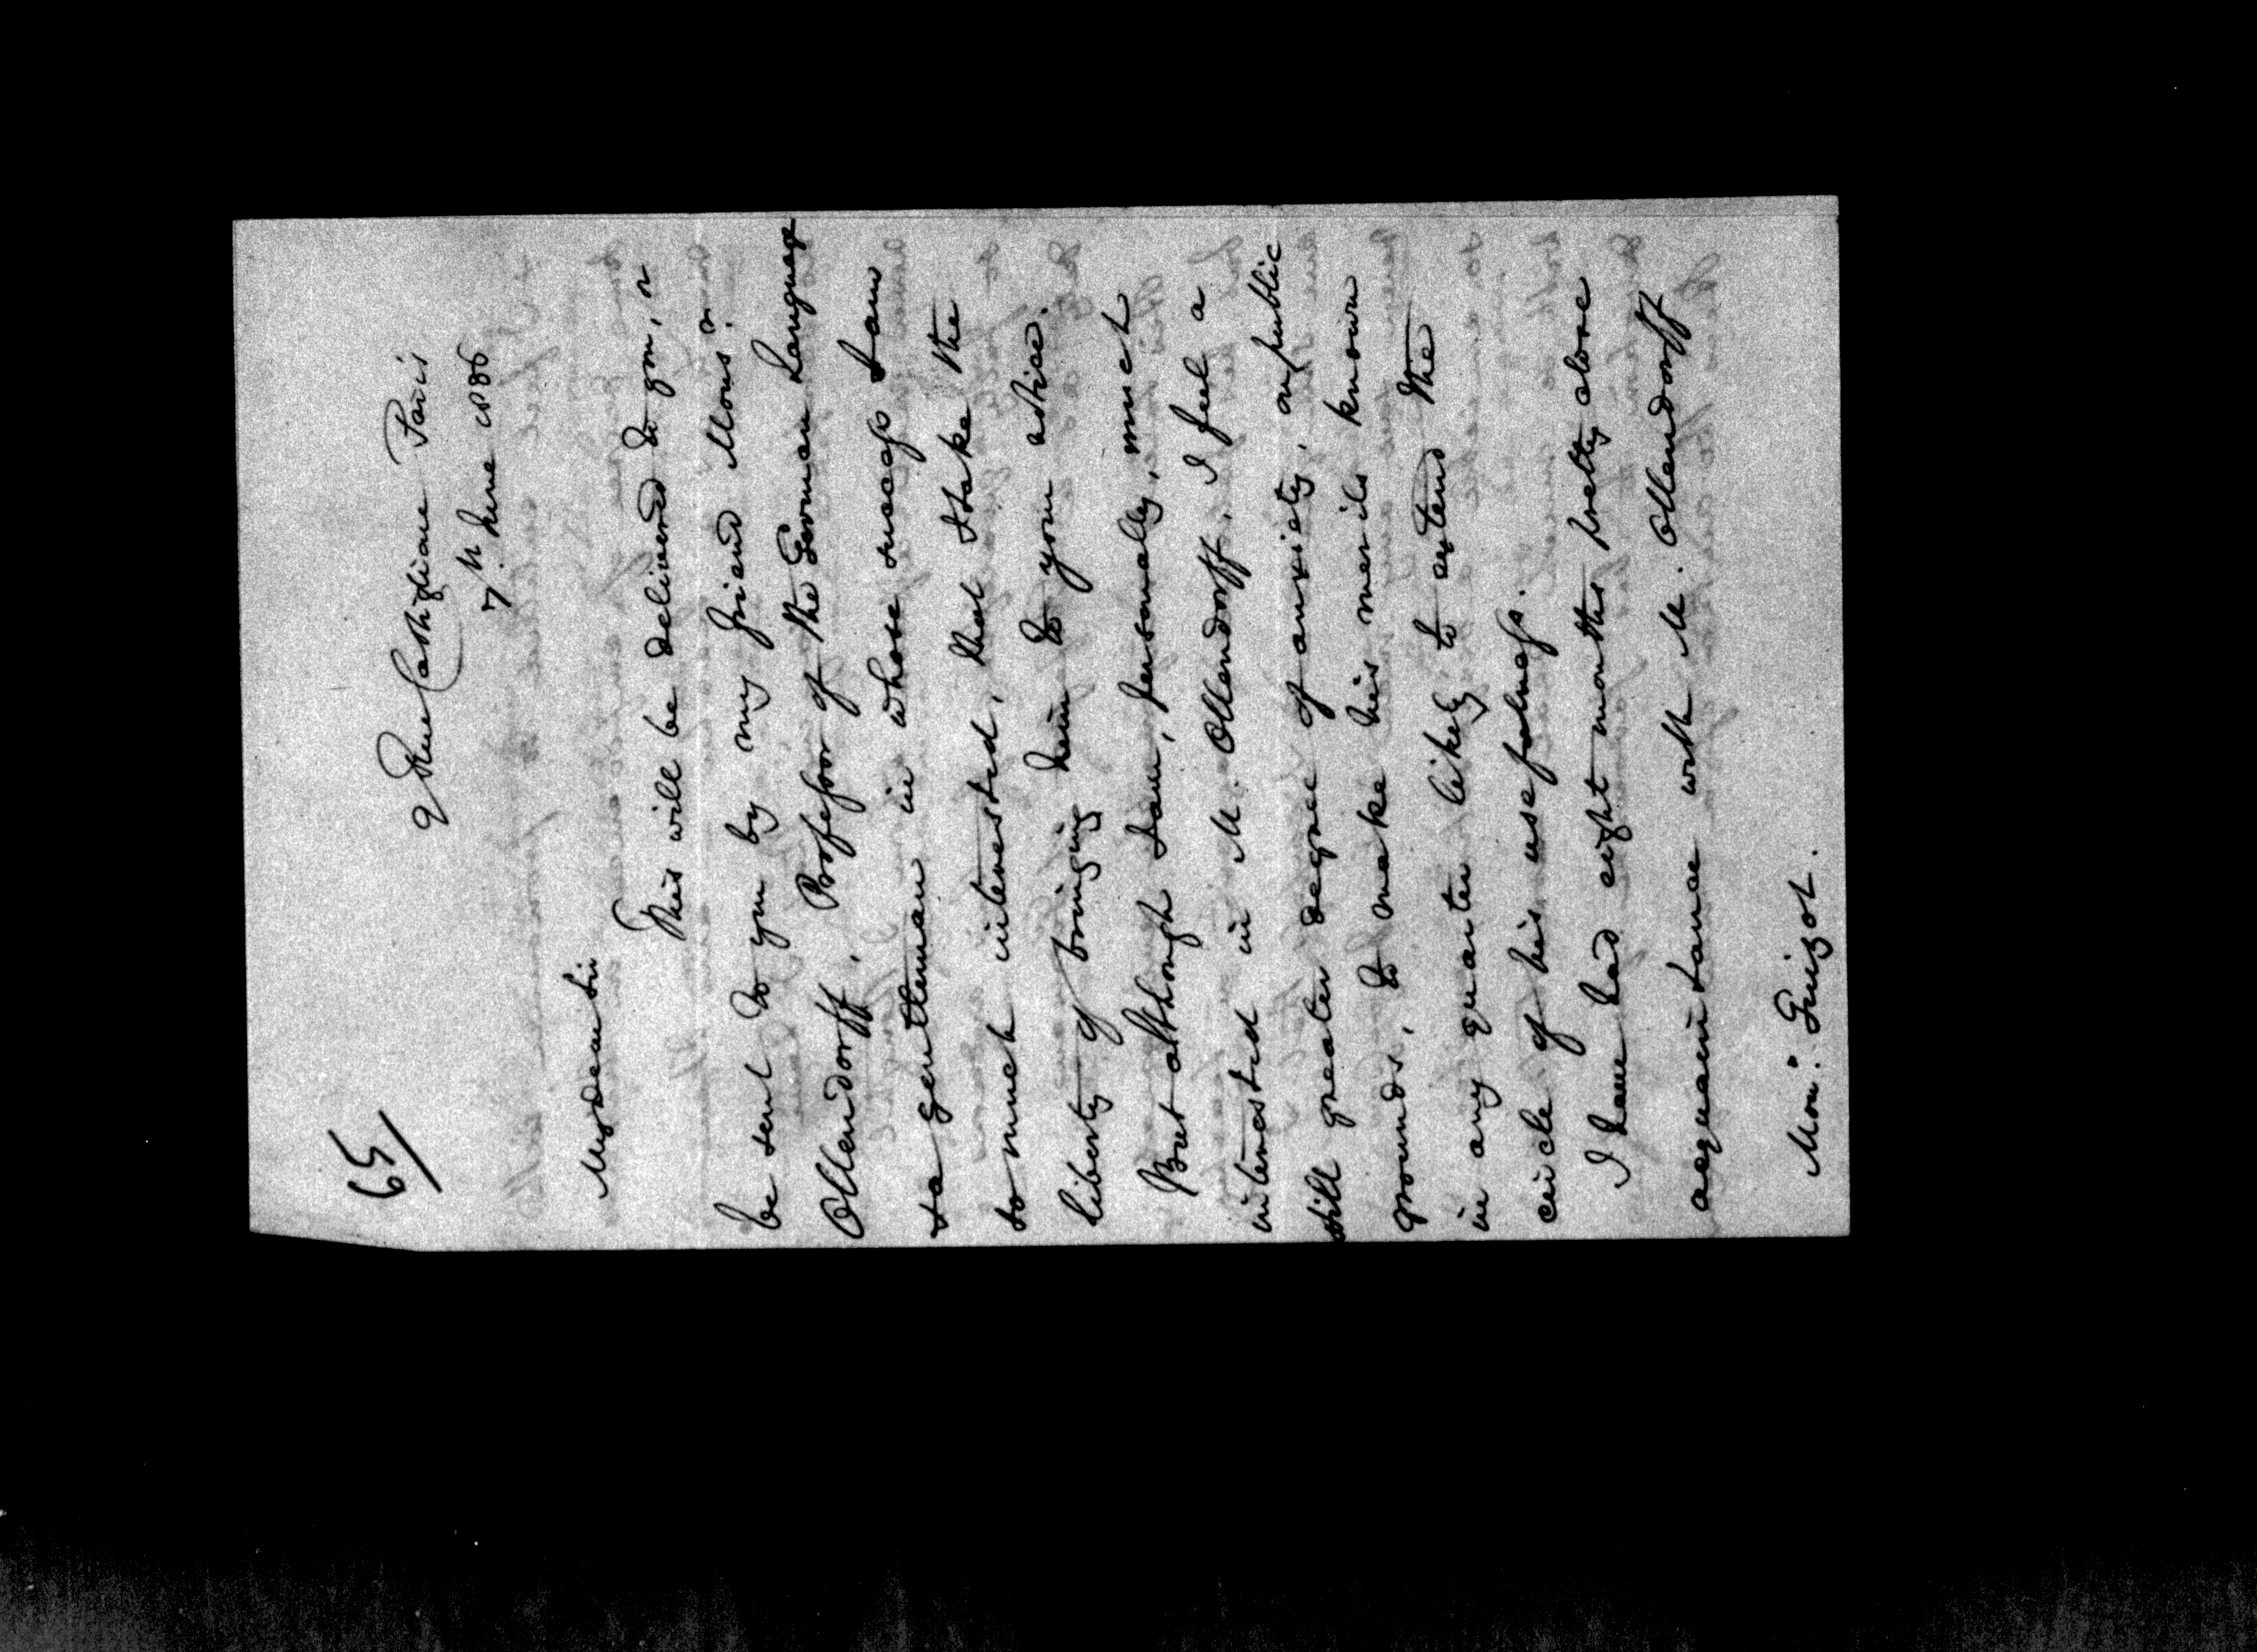 65/
9 Rue Castiglione Paris
7th June 1836
My dear Sir
This will be delivered to you, or
be sent to you by my friend Monsr.
Ollendorff, Professor of the German Language
to a gentleman in whose success I am
so much interested, that I take the
liberty of bringing him to your notice.
But although I am, personally, much
interested in M. Ollendorff, I feel a
still greater degree of anxiety, on public
grounds, to make his merits known
in any quarter likely to extend the
circle of his usefulness.
I have had eight months pretty close
acquaintance with M. Ollendorff
Mon: Guizot.